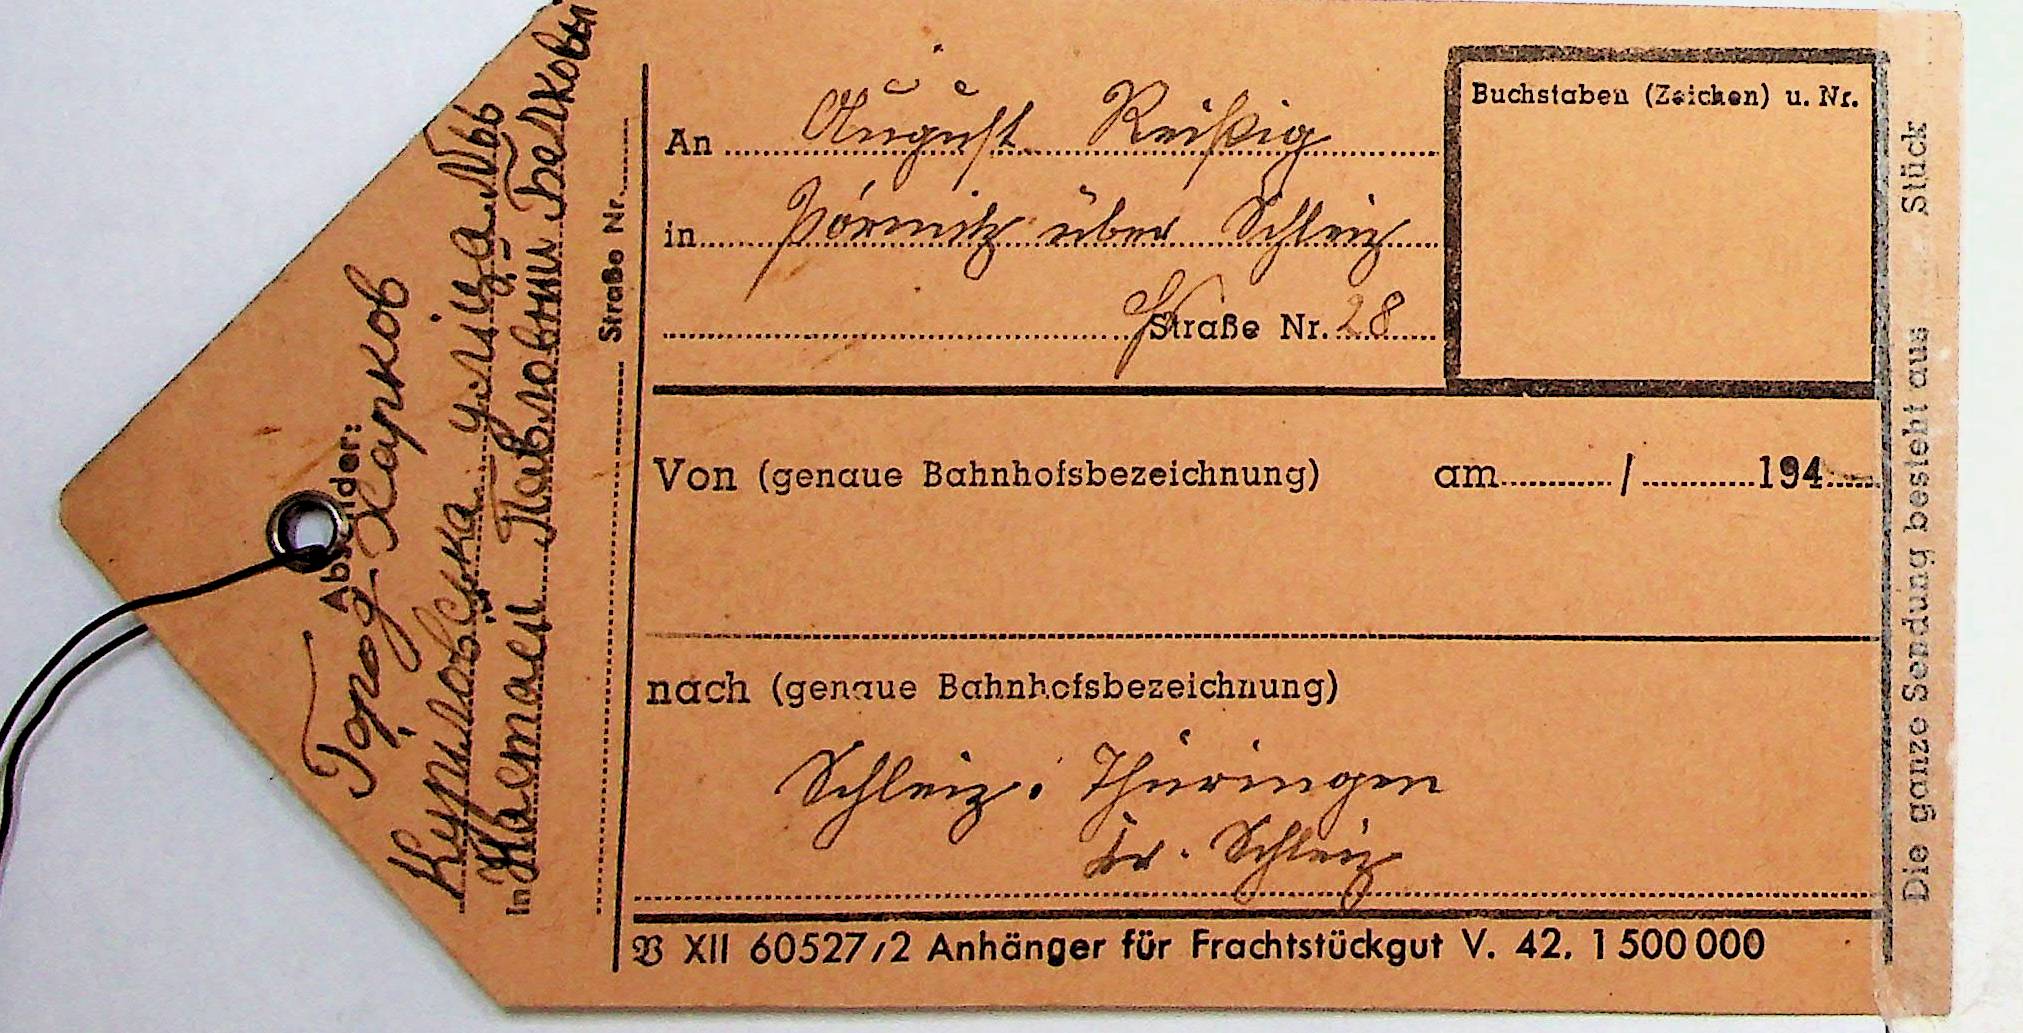 Absender:
Город Харков
Куриловска улiца №66
In Настаси Павловни Белковы
Straße Nr.
An August Reißig
in Pörmitz über Schleiz
Straße Nr. 28
Buchstaben (Zeichen) u. Nr.
Von (genaue Bahnhofsbezeichnung) am / 194
nach (genaue Bahnhofsbezeichnung)
Schleiz. Thüringen
Kr. Schleiz
XII 60527/2 Anhänger für Frachtstückgut V. 42. 1 500 000
Die ganze Sendung besteht aus Stück